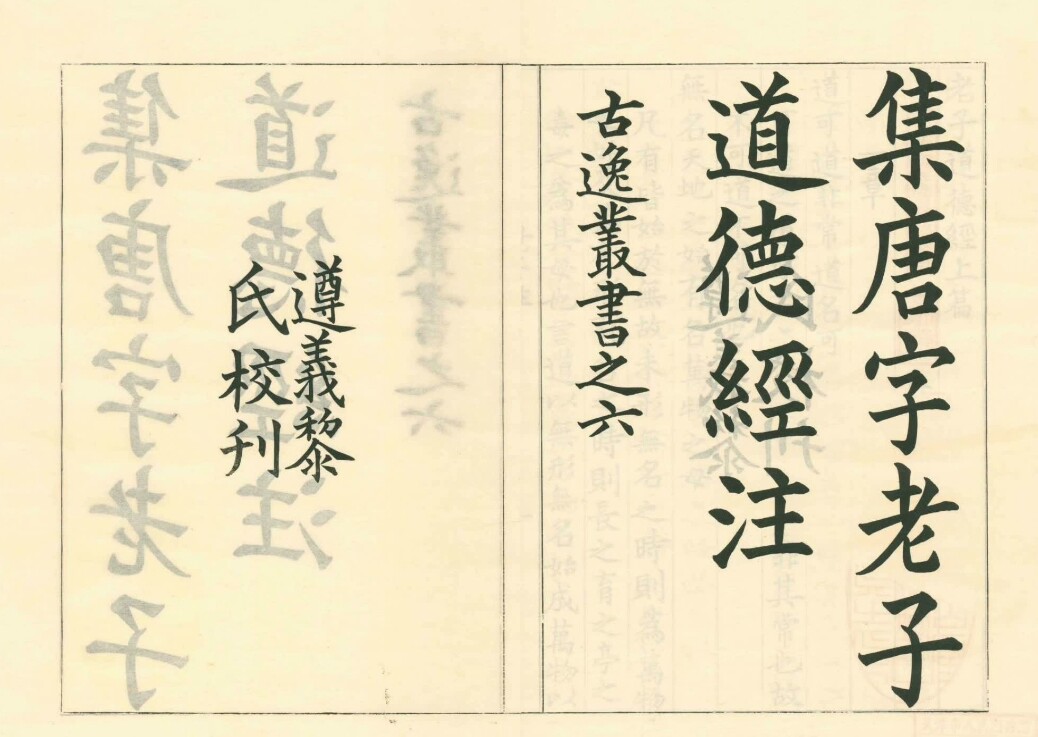 集唐字老子
道德經注
古逸叢書之六
遵義黎
氏校刊